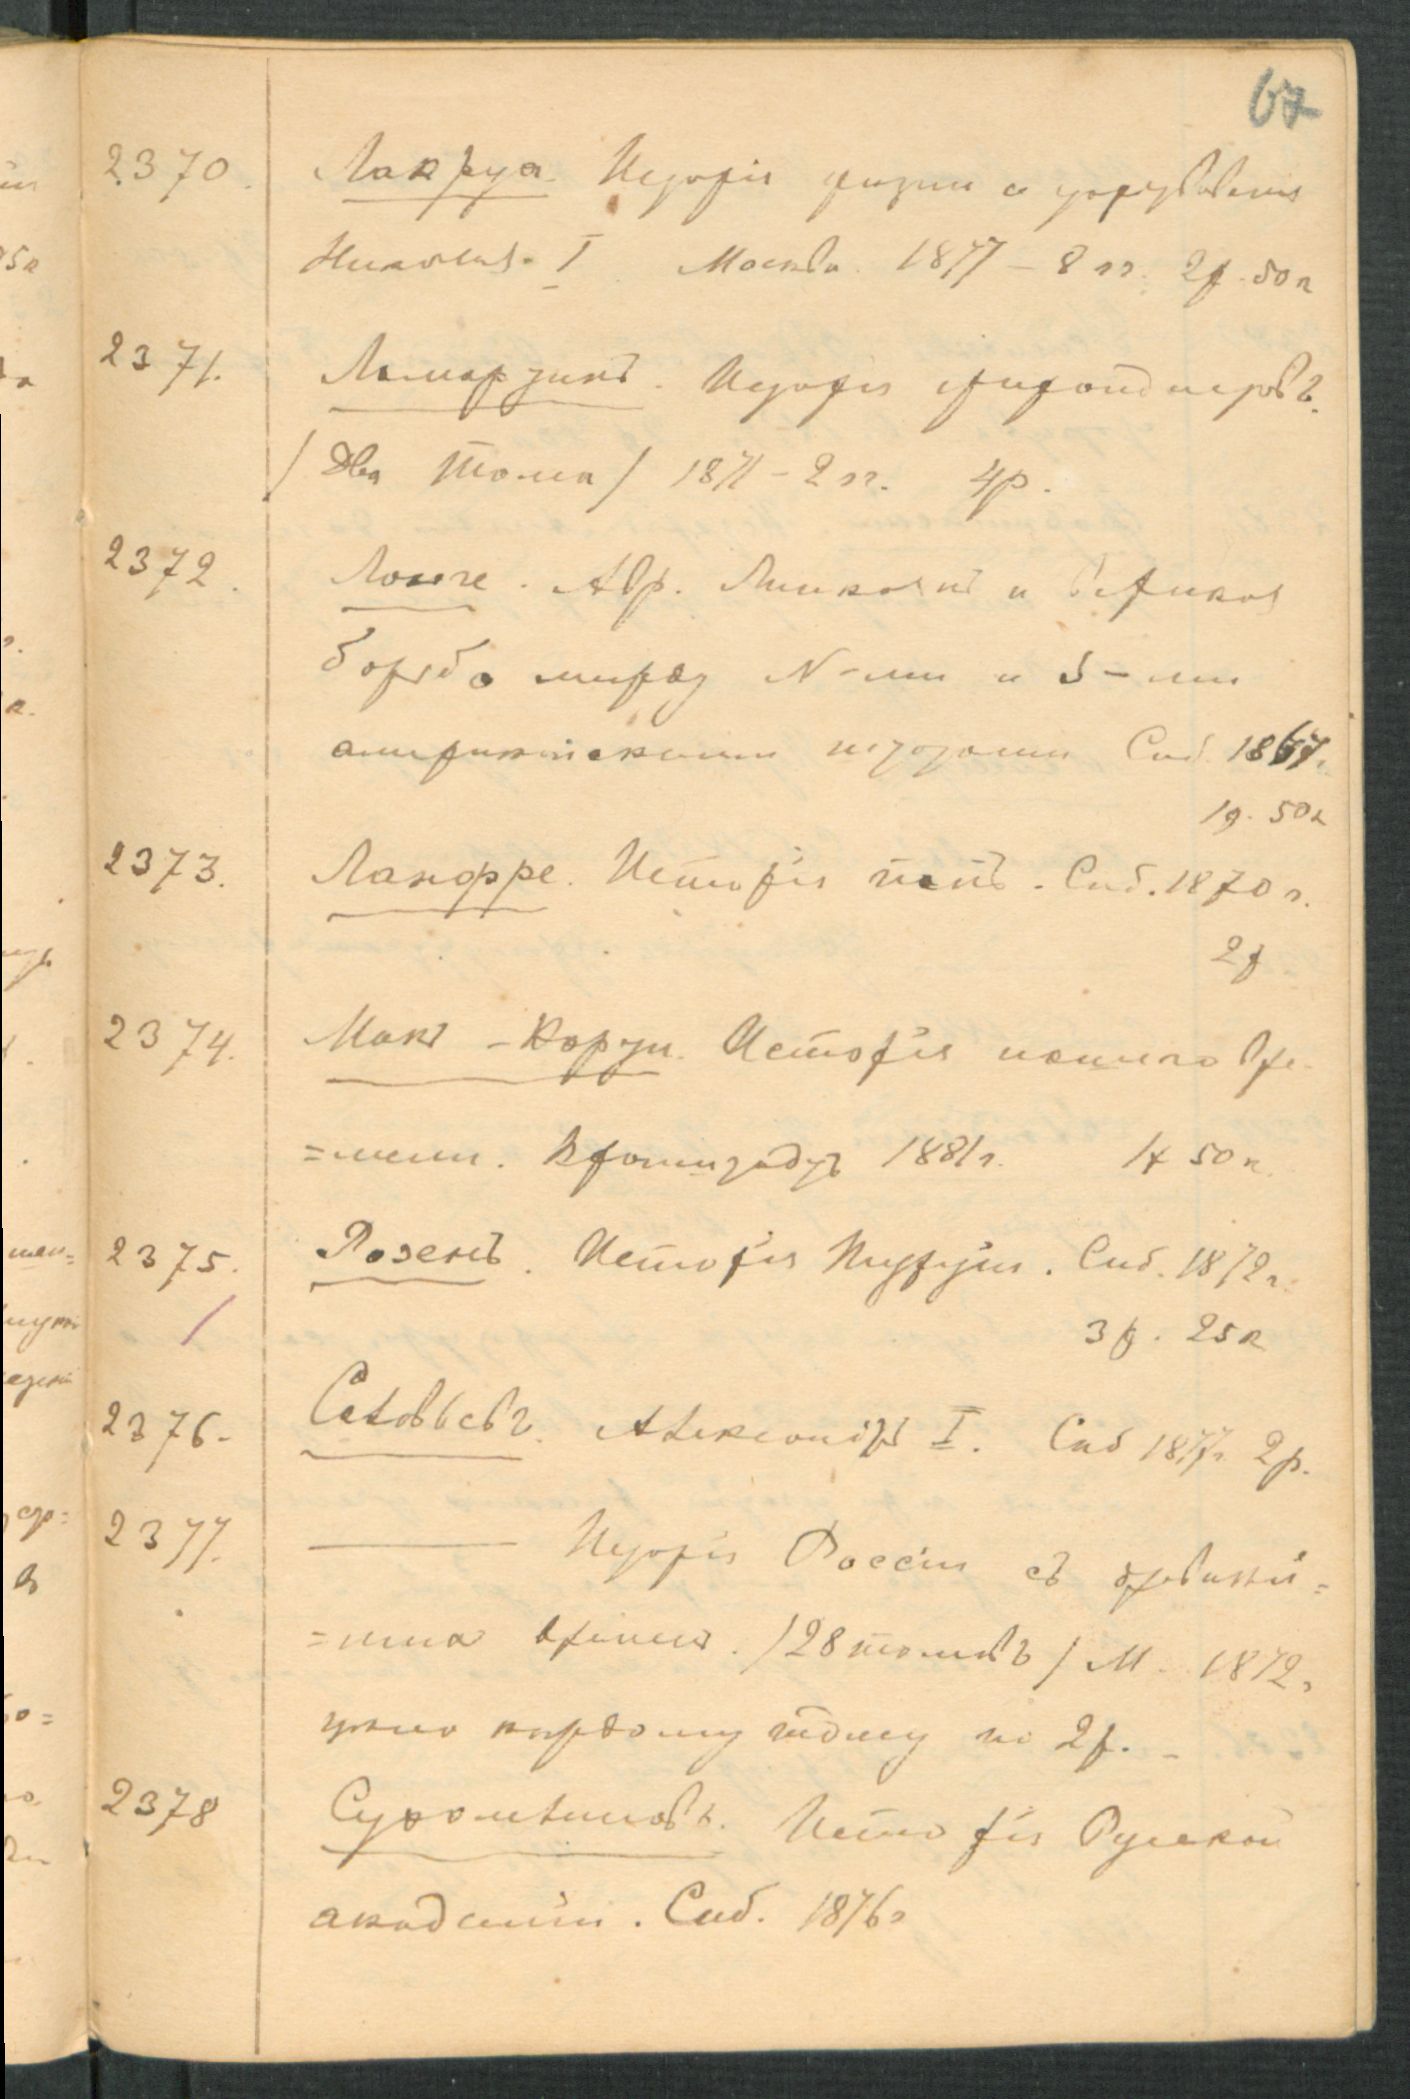 67
2370. Лакруа Исторія жизни и царствованія
Николая I Москва. 1877–8 гг. 2р. 50к
2371. Ламартинъ. Исторія жирондистовъ.
/Два тома/ 1871–2 гг. 4р.
2372. Ланге. Авр. Линкольнъ и великая
борьба между N-ми и S-ми
американскими штатами Спб. 1867.
1р. 50к
2373. Ланфре. Исторія папъ. Спб. 1870 г.
2р
2374. Макъ-Карти. Исторія нашего вре-
=мени. Кронштадтъ 1881г. 1р 50к.
2375. Розенъ. Исторія Турціи. Спб. 1872г.
3р. 25к
2376. Соловьевъ. Александръ I. Спб 1877г. 2р.
2377. ——— Исторія Россіи съ древнѣй=
=шихъ временъ. /28 томовъ/ М. 1872г
цѣна каждому тому по 2р.
2378 Сухомлиновъ. Исторія Русской
академіи. Спб. 1876г